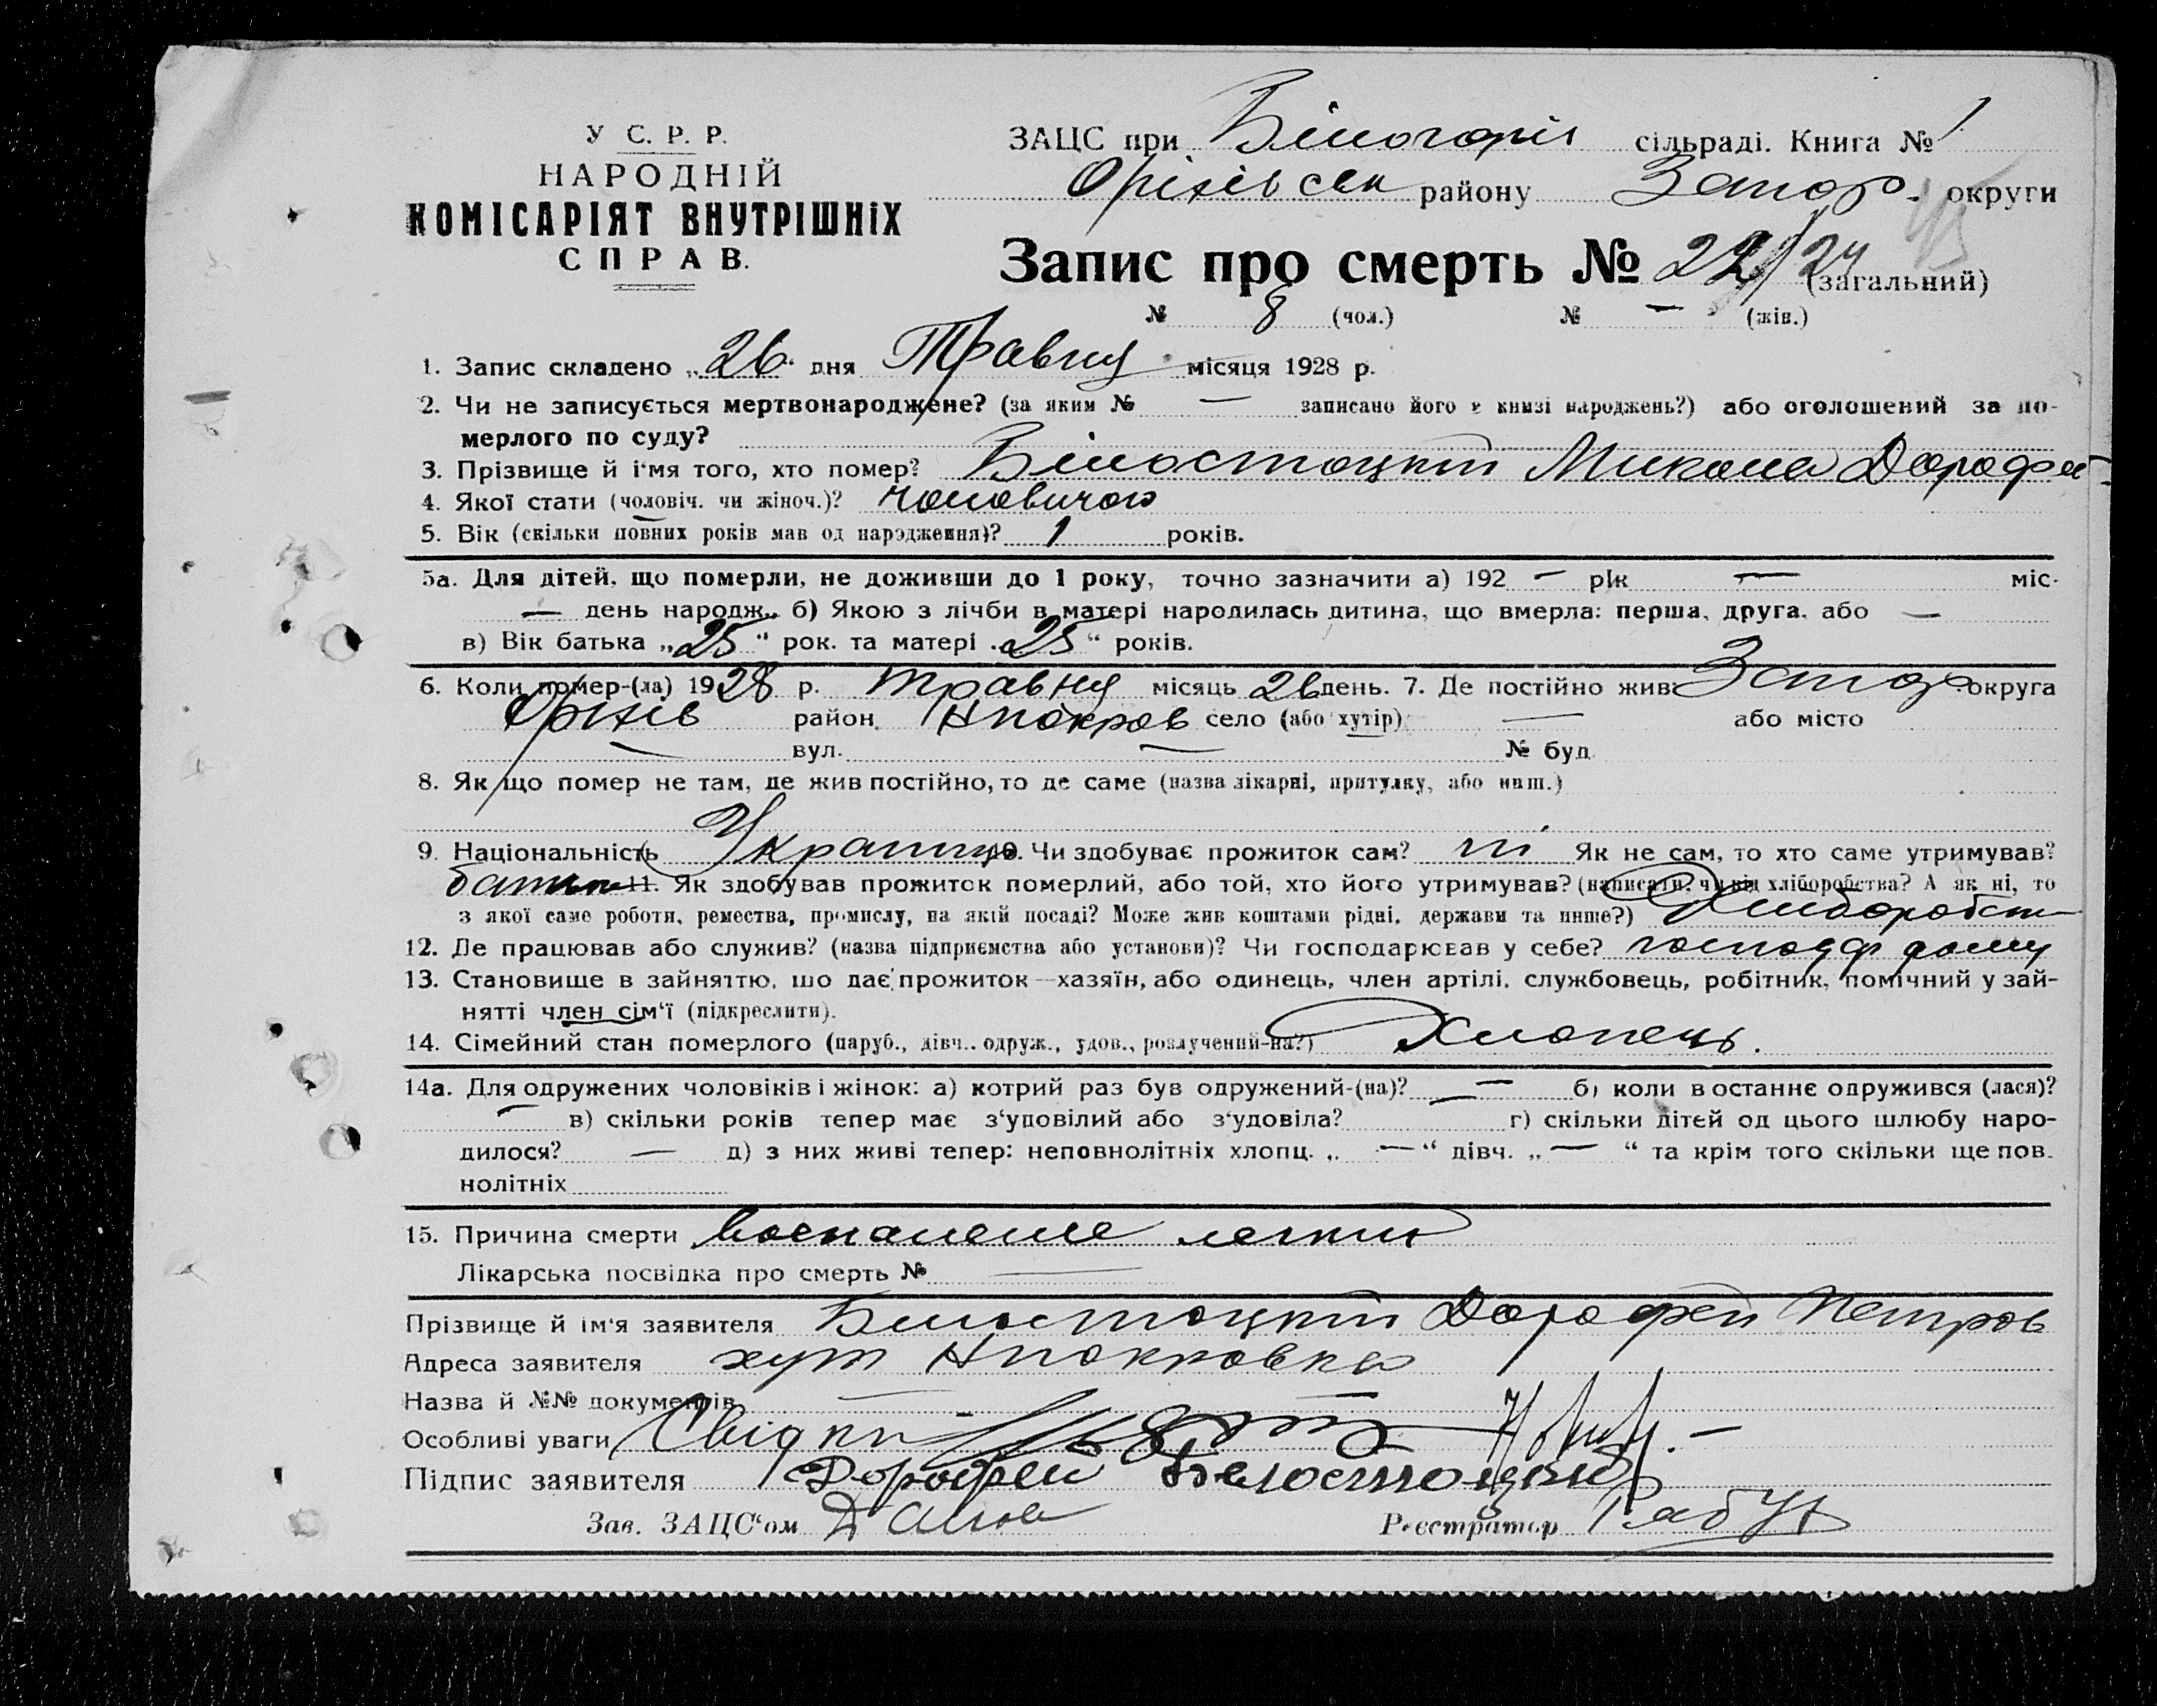 У С. Р. Р.
НАРОДНІЙ
КОМІСАРІЯТ ВНУТРІШНІХ
СПРАВ.
ЗАЦС при Білогоріл сільраді. Книга № 1
Оріхівськ району Запор. округи
Запис про смерть № 22/24 (загальний)
№ 8 (чол.) № — (жів.)
1. Запис складено „26" дня Травня місяця 1928 р.
2. Чи не записується мертвонароджене? (за яким № — записано його в книзі народжень?) або оголошений за по-
мерлого по суду?
3. Прізвище й ім'я того, хто помер? Білостоцкий Микола Дорофей
4. Якої стати (чоловіч. чи жіноч.)? чоловичого
5. Вік (скільки повних років мав од народження)? 1 років.
5а. Для дітей, що померли, не доживши до 1 року, точно зазначити а) 192 — рік — міс.
— день народж., б) Якою з лічби в матері народилась дитина, що вмерла: перша, друга, або —
в) Вік батька „25" рок. та матері „25" років.
6. Коли помер-(ла) 1928 р. травня місяць 26 день. 7. Де постійно жив Запор округа
Оріхів район Нпокров село (або хутір) — або місто
— вул. — № буд.
8. Якщо помер не там, де жив постійно, то де саме (назва лікарні, притулку, або инш.)
9. Національність Українць 10. Чи здобуває прожиток сам? ні Як не сам, то хто саме утримував?
батько 11. Як здобував прожиток померлий, або той, хто його утримував? (написати: чи від хліборобства? А як ні, то
з якої саме роботи, ремества, промислу, на якій посаді? Може жив коштами рідні, держави та инше?) Хлиборобст
12. Де працював або служив? (назва підприємства або установи)? Чи господарював у себе? дому
13. Становище в зайняттю, що дає прожиток — хазяїн, або одинець, член артілі, службовець, робітник, помічний у зай-
нятті член сім'ї (підкреслити).
14. Сімейний стан померлого (паруб., дівч., одруж., удов., розлучений-на?) Хлопець.
14а. Для одружених чоловіків і жінок: а) котрий раз був одружений-(на)? — б) коли в останнє одружився (лася)?
— в) скільки років тепер має з'удовілий або з'удовіла? г) скільки дітей од цього шлюбу наро-
дилося? — д) з них живі тепер: неповнолітніх хлопц. „ — " дівч. „ — " та крім того скільки ще пов-
нолітніх
15. Причина смерти воспаление легких
Лікарська посвідка про смерть № —
Прізвище й ім'я заявителя Білостоцкий Дорофей Петров
Адреса заявителя хут Нпокровка
Назва й №№ документів — —
Особливі уваги Свідки
Підпис заявителя Дорофей Белостоцкий
Зав. ЗАЦС'ом
Реєстратор